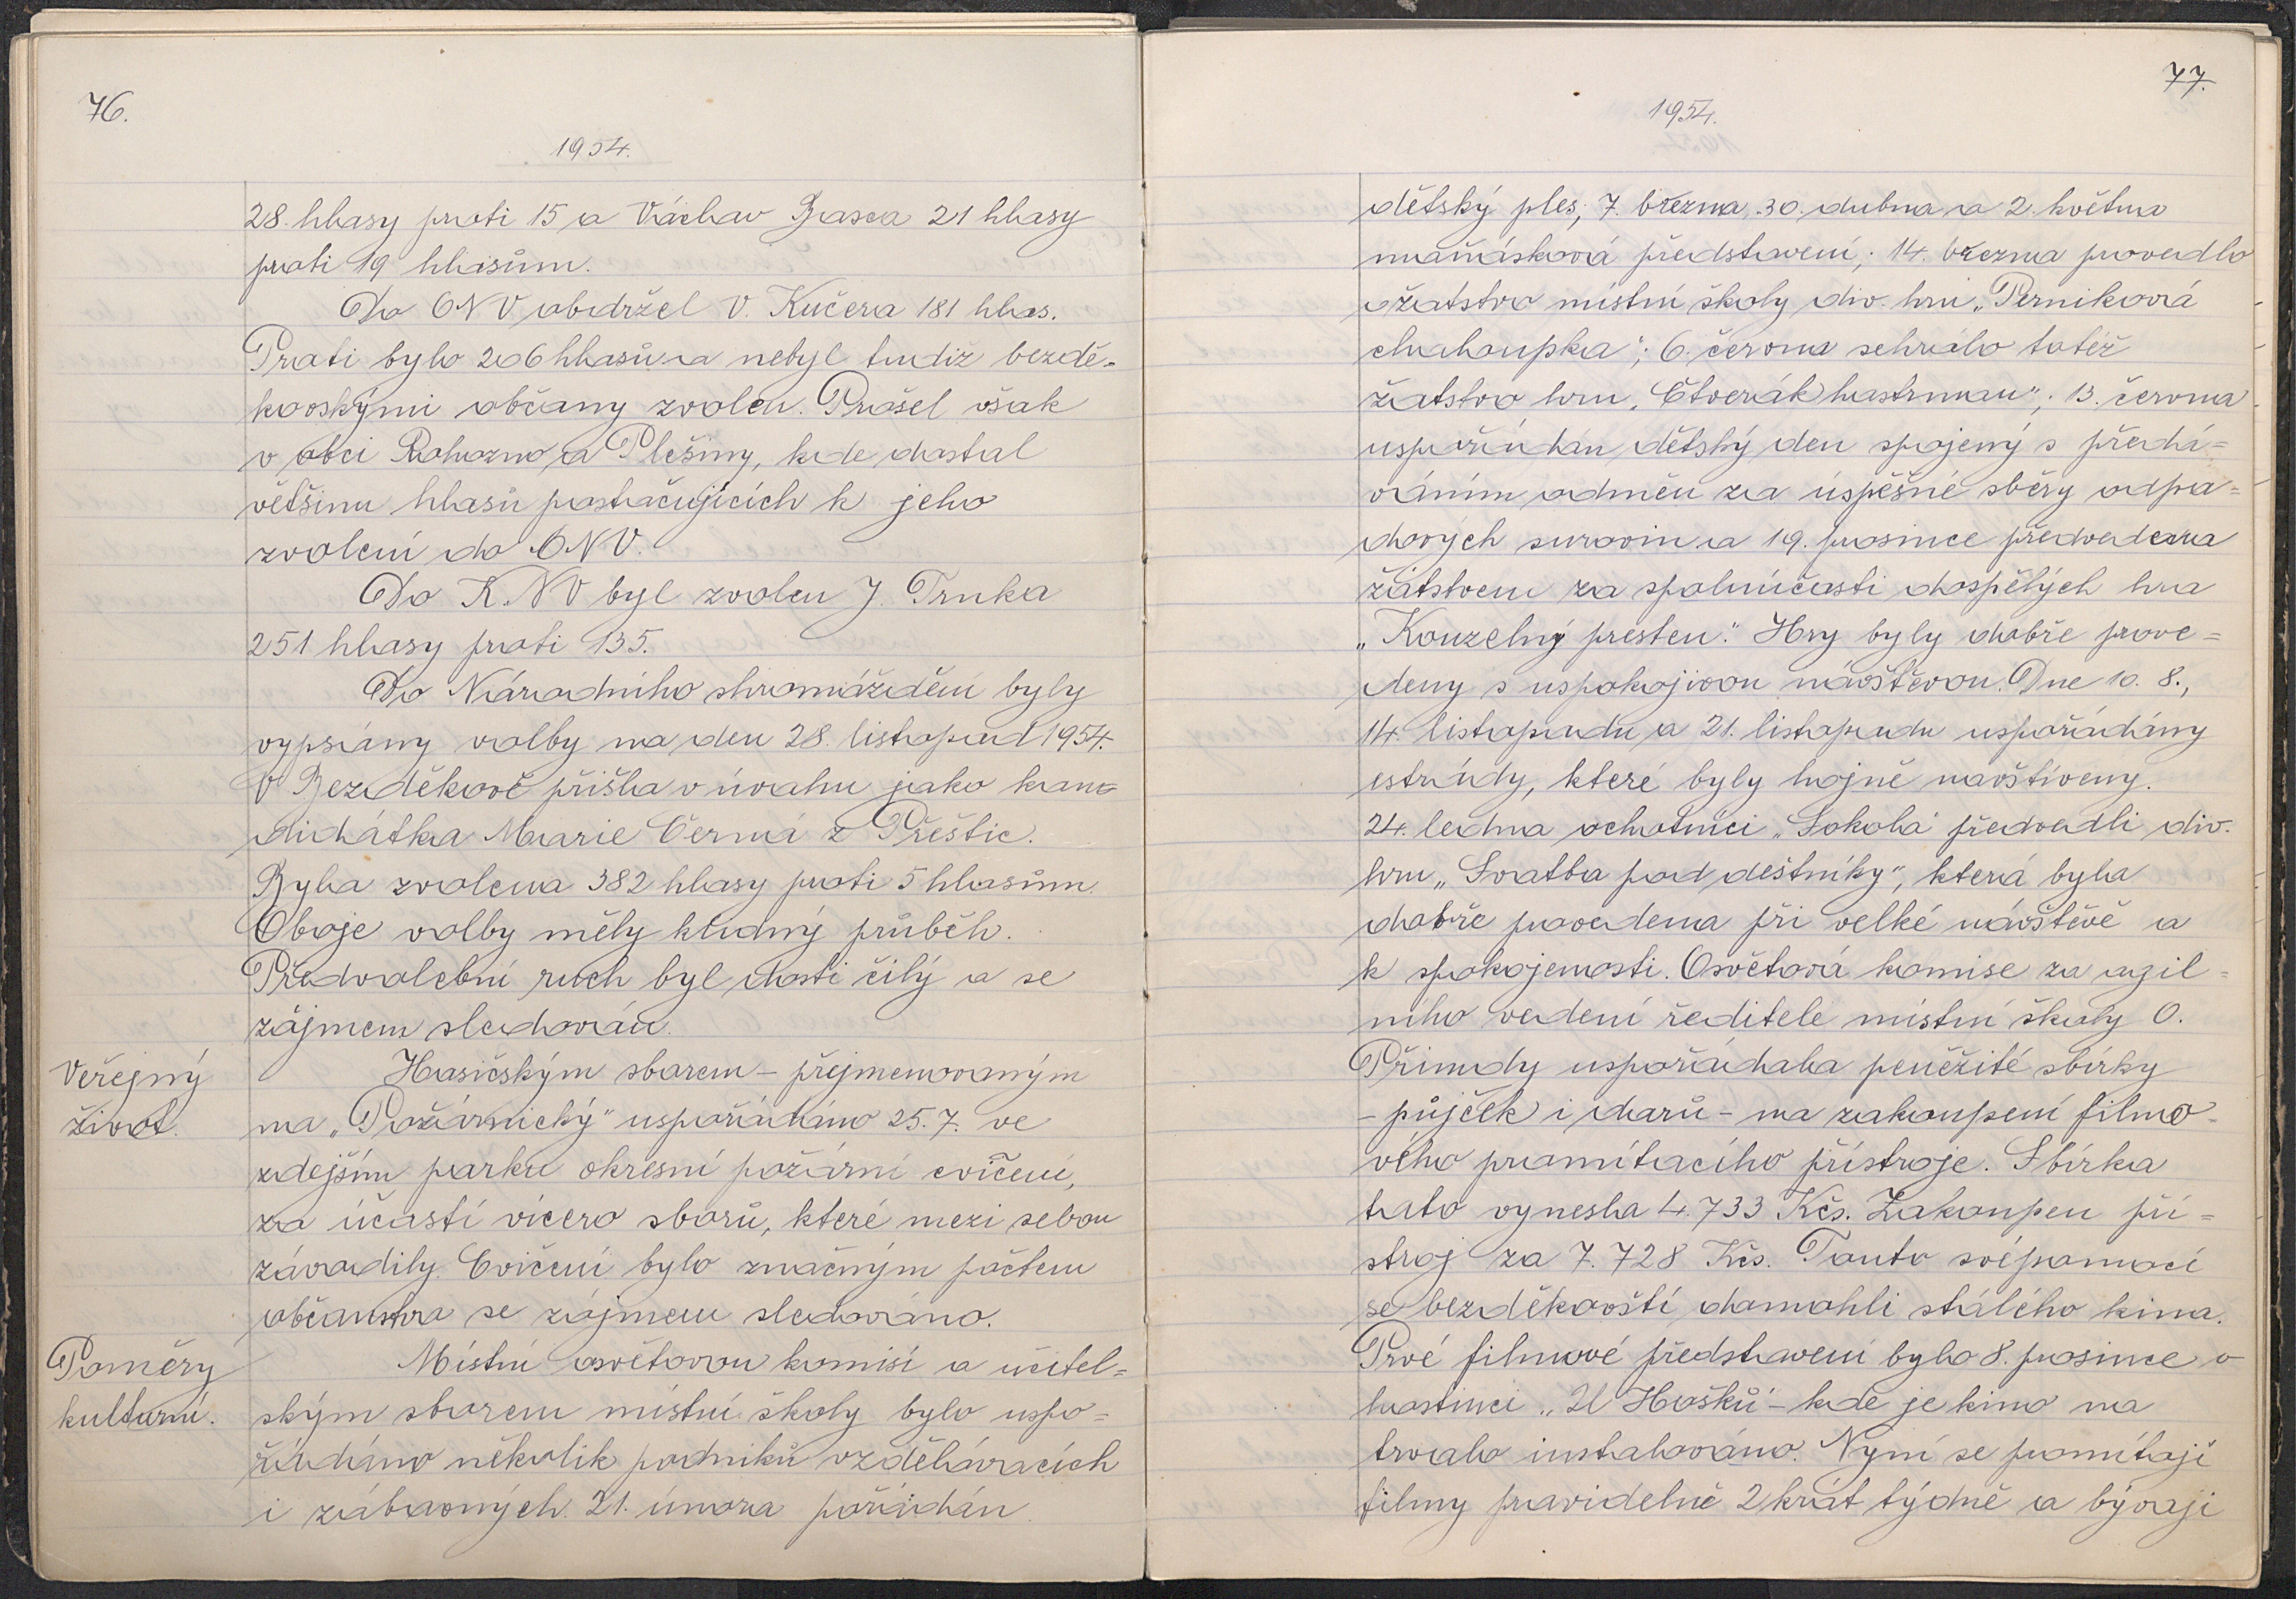 76.
1954.
28. hlasy proti 15 a Václav Basca 21 hlasy
proti 19 hlasům.
Do ONV obdržel V. Kučera 181 hlas.
Proti bylo 206 hlasů a nebyl tudiž bezdě-
kovskými občany zvolen. Prošel však
v obci Rohozno a Plešiny, kde dostal
většinu hlasů postačujících k jeho
zvolení do ONV.
Do K.NV byl zvolen J. Trnka
251 hlasy proti 135.
Do Národního shromáždění byly
vypsány volby na den 28. listopad 1954.
V Bezděkově přišla v úvahu jako kan=
didátka Marie Černá z Přeštic.
Byla zvolena 382 hlasy proti 5 hlasům.
Oboje volby měly kludný průběh.
Předvolební ruch byl dosti čilý a se
zájmem sledován.
Veřejný
život.
Hasičským sborem - přejmenovaným
na „Požárnický" uspořádáno 25. 7. ve
zdejším parku okresní požární cvičení,
za účasti vícero sborů, které mezi sebou
závodily. Cvičení bylo značným počtem
občanstva se zájmem sledováno.
Poměry
kulturní.
Místní osvětovou komisí a učitel=
ským sborem místní školy bylo uspo=
řádáno několik podniků vzdělávacích
i zábavných. 21. února pořádán
77.
1954.
dětský ples, 7. března, 30. dubna a 2. května
maňásková představení; 14. března provedlo
žatstvo místní školy div. hru „Perníková
chaloupka"; 6. června sehrálo totéž
žatstvo hru „Čtverák hastrman"; 13. června
uspořádán dětský den spojený s předá=
váním odměn za úspěšné sběry odpa=
dových surovin a 19. prosince předvedena
žátstvem za spoluúčasti dospělých hra
„Kouzelný prsten". Hry byly dobře prove=
deny s uspokojivou návštěvou. Dne 10. 8.,
14. listopadu a 21. listopadu uspořádány
estrády, které byly hojně navštíveny.
24. ledna ochotníci „Sokola" předvedli div.
hru „Svatba pod deštníky", která byla
dobře provedena při velké návštěvě a
k spokojenosti. Osvětová komise za agil=
ního vedení ředitele místní školy O.
Přimdy uspořádala peněžité sbírky
- půjček i darů - na zakoupení filmo=
vého promítacího přístroje. Sbírka
tato vynesla 4.733 Kčs. Zakoupen pří=
stroj za 7.728 Kčs. Touto svépomocí
se bezděkovští domohli stálého kina.
Prvé filmové představení bylo 8. prosince v
hostinci „U Hošků" - kde je kino na
trvalo instalováno. Nyní se promítají
filmy pravidelně 2 krát týdně a bývají